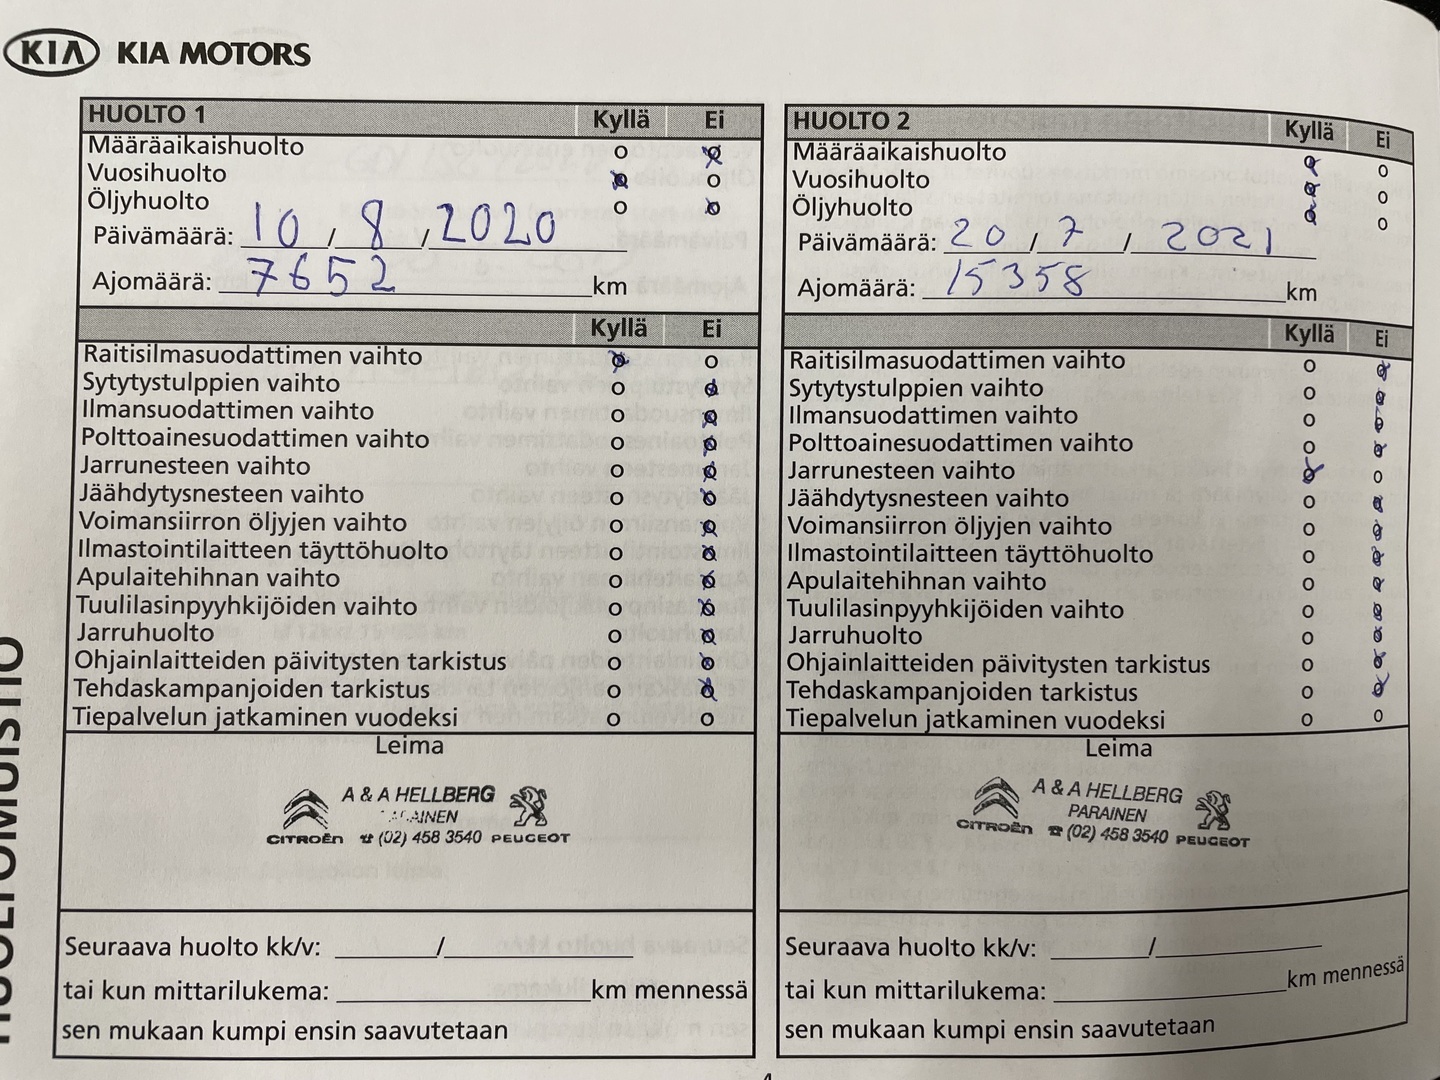 KIA KIA MOTORS
HUOLTO 1 Kyllä Ei
Määräaikaishuolto o o
Vuosihuolto o o
Öljyhuolto o o
Päivämäärä: 10 / 8 / 2020
Ajomäärä: 7652 km
Kyllä Ei
Raitisilmasuodattimen vaihto o o
Sytytystulppien vaihto o o
Ilmansuodattimen vaihto o o
Polttoainesuodattimen vaihto o o
Jarrunesteen vaihto o o
Jäähdytysnesteen vaihto o o
Voimansiirron öljyjen vaihto o o
Ilmastointilaitteen täyttöhuolto o o
Apulaitehihnan vaihto o o
Tuulilasinpyyhkijöiden vaihto o o
Jarruhuolto o o
Ohjainlaitteiden päivitysten tarkistus o o
Tehdaskampanjoiden tarkistus o o
Tiepalvelun jatkaminen vuodeksi o o
Leima
A & A HELLBERG
CITROËN ☎ (02) 458 3540 PEUGEOT
Seuraava huolto kk/v: ______/__________
tai kun mittarilukema: ______________ km mennessä
sen mukaan kumpi ensin saavutetaan
HUOLTO 2 Kyllä Ei
Määräaikaishuolto o o
Vuosihuolto o o
Öljyhuolto o o
Päivämäärä: 20 / 7 / 2021
Ajomäärä: 15358 km
Kyllä Ei
Raitisilmasuodattimen vaihto o o
Sytytystulppien vaihto o o
Ilmansuodattimen vaihto o o
Polttoainesuodattimen vaihto o o
Jarrunesteen vaihto o o
Jäähdytysnesteen vaihto o o
Voimansiirron öljyjen vaihto o o
Ilmastointilaitteen täyttöhuolto o o
Apulaitehihnan vaihto o o
Tuulilasinpyyhkijöiden vaihto o o
Jarruhuolto o o
Ohjainlaitteiden päivitysten tarkistus o o
Tehdaskampanjoiden tarkistus o o
Tiepalvelun jatkaminen vuodeksi o o
Leima
A & A HELLBERG
PARAINEN
CITROËN ☎ (02) 458 3540 PEUGEOT
Seuraava huolto kk/v: ______/__________
tai kun mittarilukema: ______________ km mennessä
sen mukaan kumpi ensin saavutetaan
HUOLTOMUISTIO